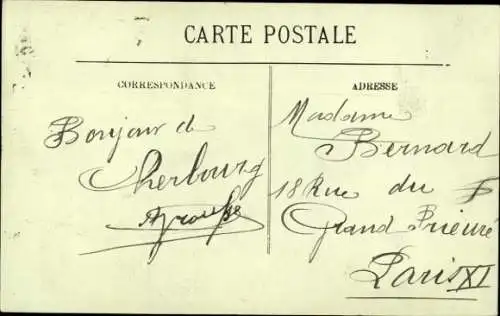 CARTE POSTALE
CORRESPONDANCE
Bonjour de
Cherbourg
ADRESSE
Madame
Bernard
18 Rue du
Grand Prieure
Paris XI